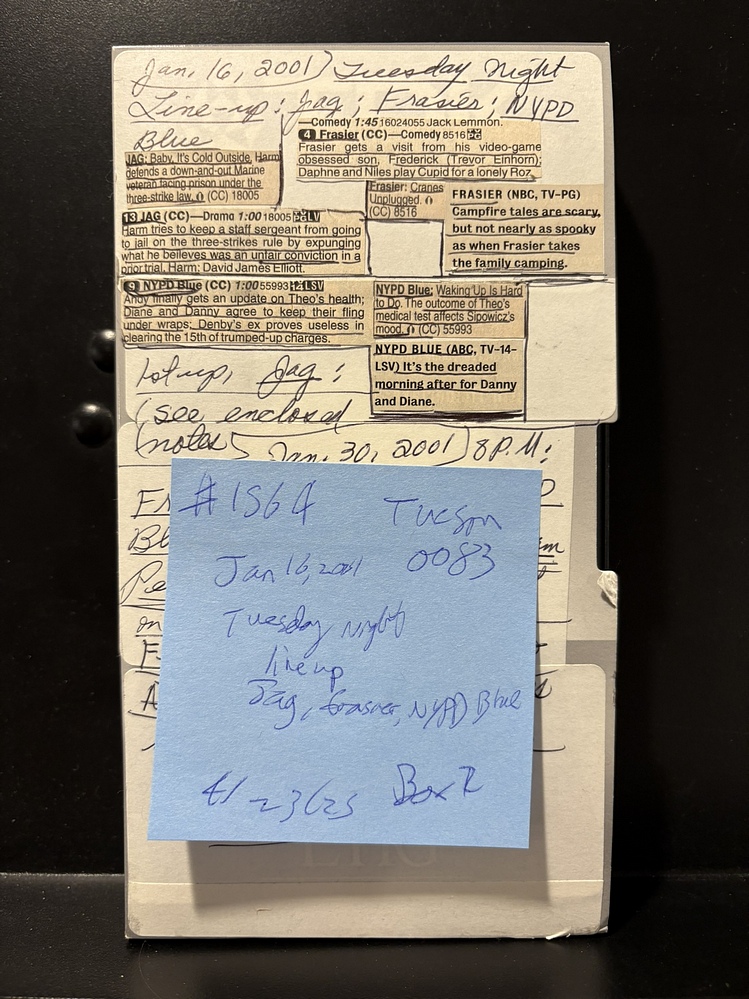 Jan. 16, 2001) Tuesday Night
Line-up: Jag; Frasier; NYPD
Blue
—Comedy 1:45 16024055 Jack Lemmon.
4 Frasier (CC)—Comedy 8516
Frasier gets a visit from his video-game
obsessed son, Frederick (Trevor Einhorn);
Daphne and Niles play Cupid for a lonely Roz.
JAG: Baby, It's Cold Outside. Harm
defends a down-and-out Marine
veteran facing prison under the
three-strike law. (CC) 18005
Frasier: Cranes
Unplugged.
(CC) 8516
FRASIER (NBC, TV-PG)
Campfire tales are scary,
but not nearly as spooky
as when Frasier takes
the family camping.
13 JAG (CC)—Drama 1:00 18005 LV
Harm tries to keep a staff sergeant from going
to jail on the three-strikes rule by expunging
what he believes was an unfair conviction in a
prior trial. Harm: David James Elliott.
9 NYPD Blue (CC) 1:00 55993 LSV
Andy finally gets an update on Theo's health;
Diane and Danny agree to keep their fling
under wraps; Denby's ex proves useless in
clearing the 15th of trumped-up charges.
NYPD Blue: Waking Up Is Hard
to Do. The outcome of Theo's
medical test affects Sipowicz's
mood. (CC) 55993
NYPD BLUE (ABC, TV-14-
LSV) It's the dreaded
morning after for Danny
and Diane.
1st up, Jag:
(see enclosed
(notes) Jan. 30, 2001) 8 P.M:
#1564 Tucson
0083
Jan 16, 2001
Tuesday Night
line up
Jag, Frasier, NYPD Blue
4/23/23 Box R